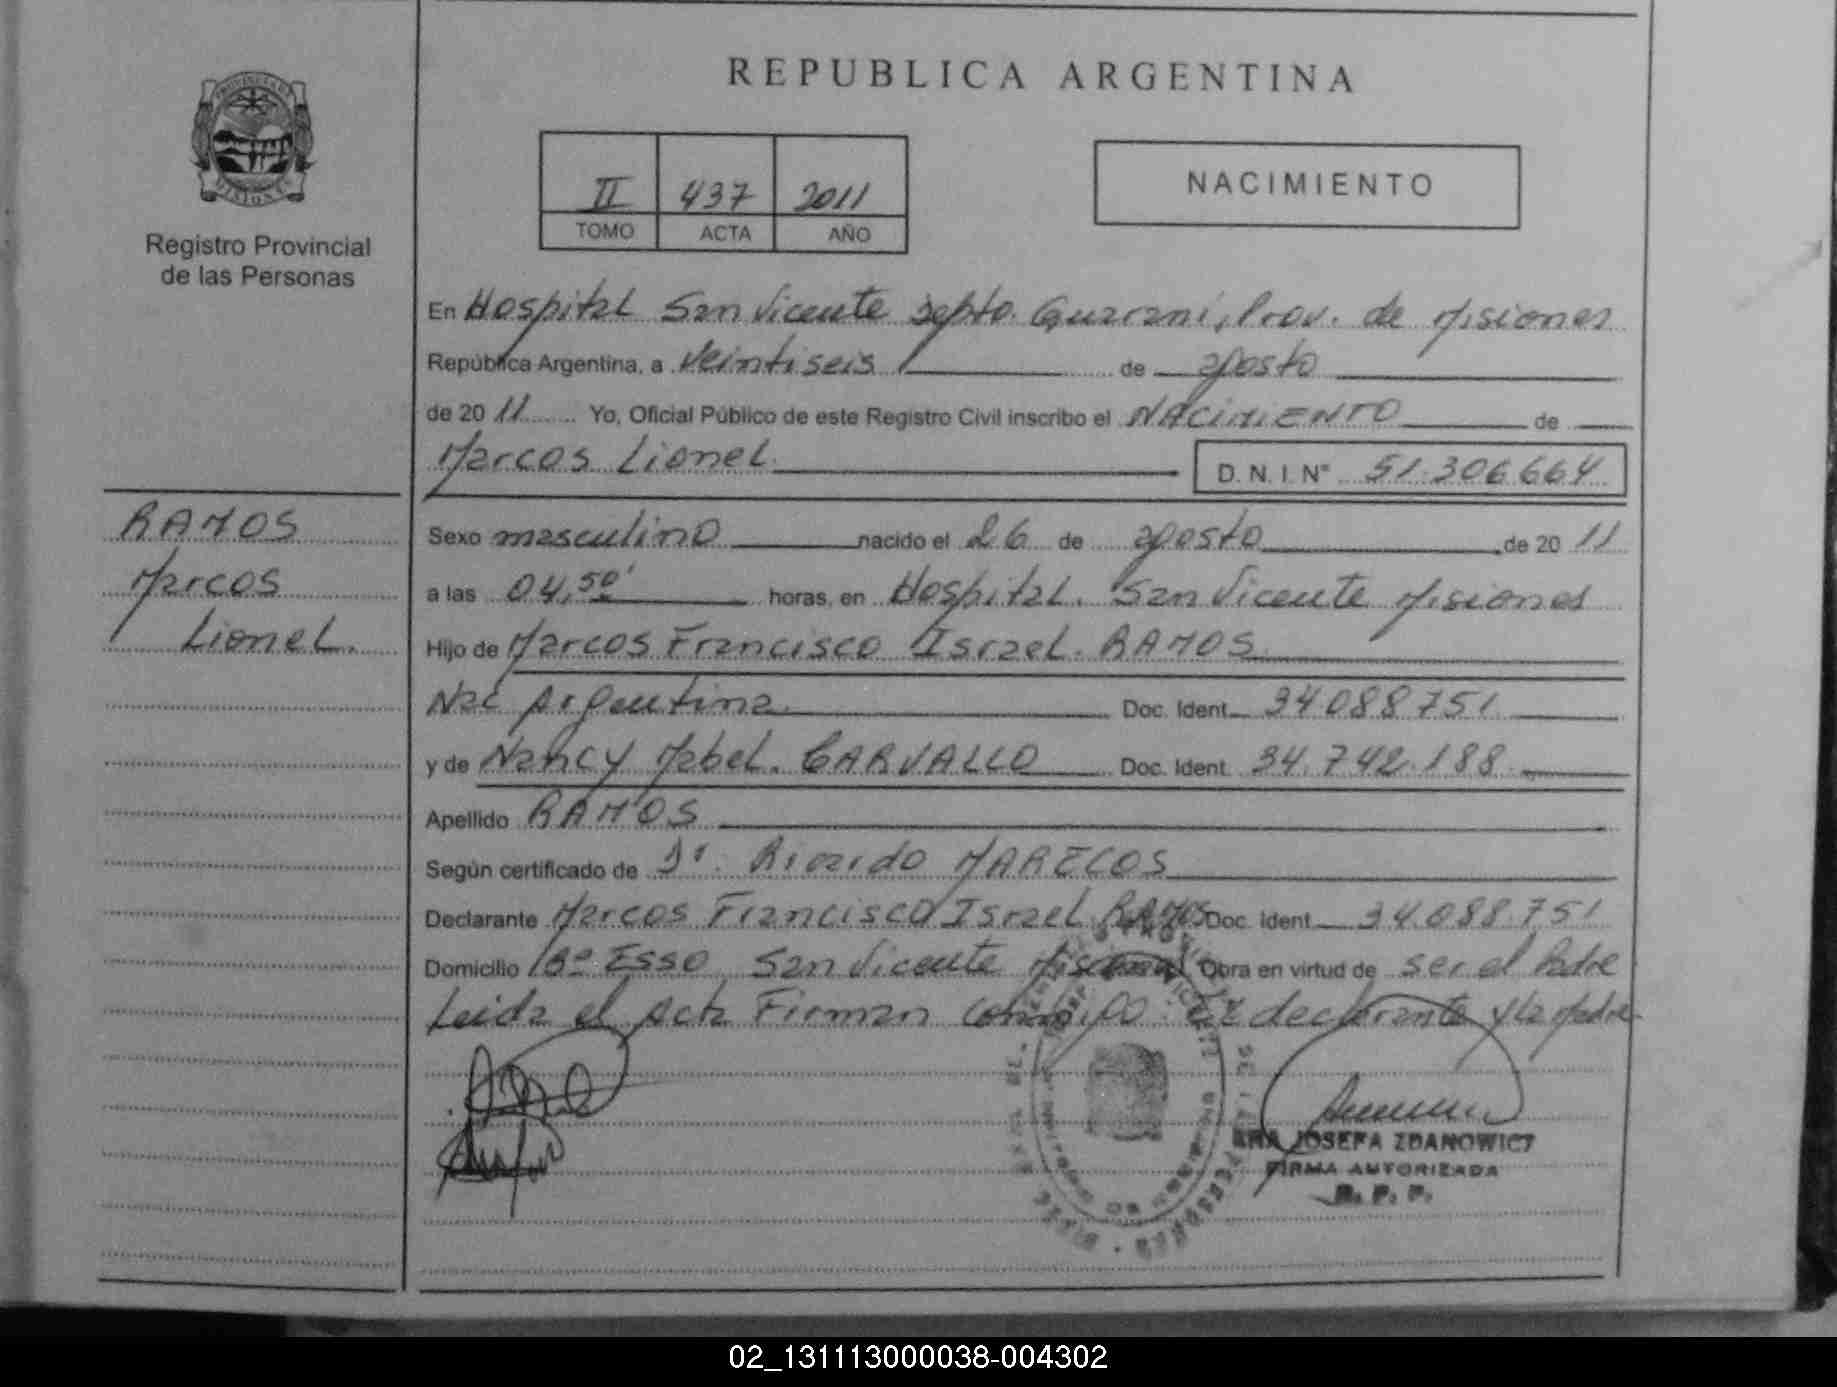 REPUBLICA ARGENTINA
PROVINCIA DE
MISIONES
Registro Provincial
de las Personas
II 437 2011
TOMO ACTA AÑO
NACIMIENTO
En Hospital San Vicente Depto. Guaraní, Prov. de Misiones
República Argentina, a Veintiseis de agosto
de 2011 Yo, Oficial Público de este Registro Civil inscribo el NACIMIENTO de
Marcos Lionel D. N. I. N° 51.306.664
RAMOS
Marcos
Lionel.
Sexo masculino nacido el 26 de agosto de 2011
a las 04,50' horas, en Hospital. San Vicente Misiones
Hijo de Marcos Francisco Israel. RAMOS
Nac Argentina. Doc. Ident. 34.088.751
y de Nancy Mabel. CARVALLO Doc. Ident. 34.742.188
Apellido RAMOS
Según certificado de Dr. MARECOS
Declarante Marcos Francisco Israel RAMOS Doc. Ident. 34.088.751
Domicilio Bº ESSO San Vicente Misiones Obra en virtud de ser el Padre
Leida el Acta Firman conmigo declarante y la Madre
ANA JOSEFA ZDANOWICZ
FIRMA AUTORIZADA
R. P. P.
02_131113000038-004302